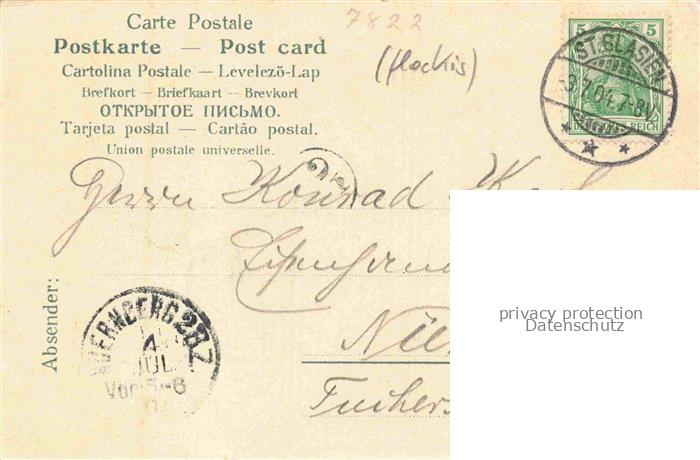 7822
Carte Postale
Postkarte — Post card
(flockis)
Cartolina Postale — Levelező-Lap
Brefkort — Briefkaart — Brevkort
ОТКРЫТОЕ ПИСЬМО.
Tarjeta postal — Cartão postal.
Union postale universelle.
5 5
ST. BLASIEN
3.7.04. 7-8V.
DEUTSCHES REICH
Herrn Konrad
Absender:
NUERNBERG 2BZ
4
JUL
Vor 5-6
privacy protection
Datenschutz